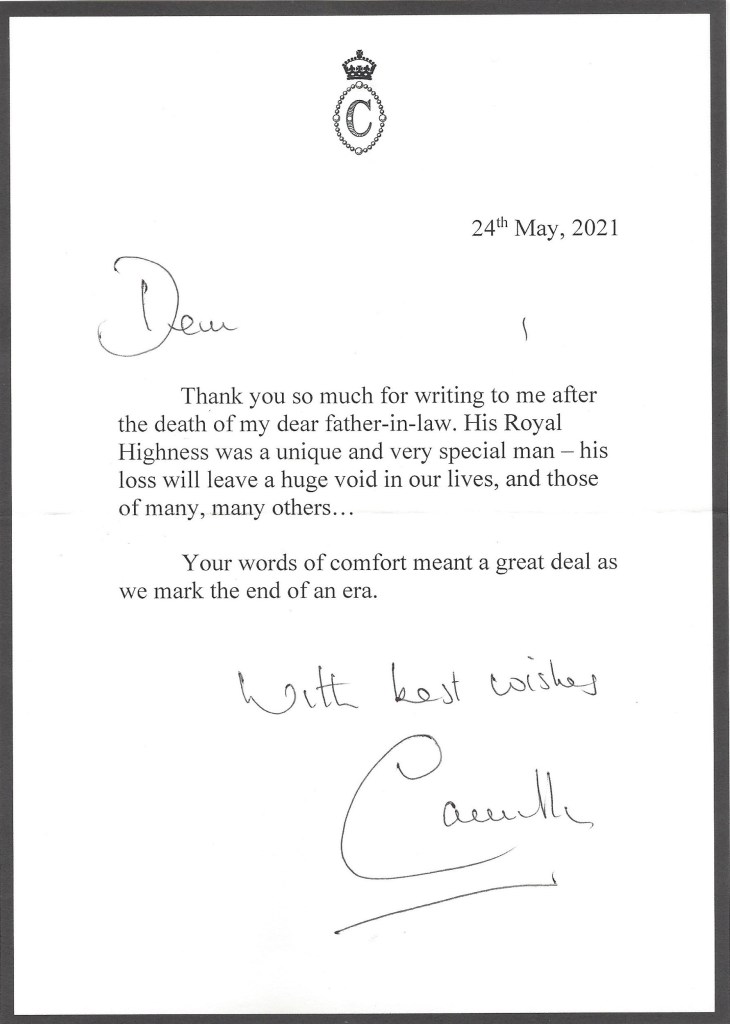 C
24th May, 2021
Dear ,
Thank you so much for writing to me after
the death of my dear father-in-law. His Royal
Highness was a unique and very special man – his
loss will leave a huge void in our lives, and those
of many, many others…
Your words of comfort meant a great deal as
we mark the end of an era.
With best wishes
Camilla